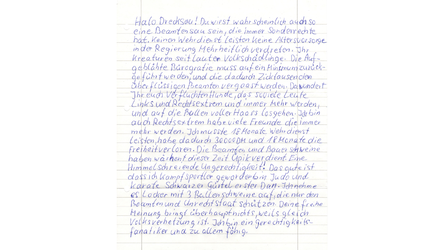 Halo Drecksau! Du wirst wahrscheinlich auch so
eine Beamtensau sein, die immer Sonderrechte
hat. Keinen Wehrdienst leisten keine Altersvorsorge
in der Regierung Mehrheitlich vertreten. Ihr
Kreaturen seit lauter Volksschädlinge. Die Auf-
geblähte Bürogratie muss auf ein Minimum zurück-
geführt werden, und die dadurch Zicktausenden
überflüssigen Beamten vergast werden. Da wundert
Ihr euch Verfluchten Hunde, das soviele Leute
Links und Rechtsextrem und immer mehr werden,
und auf die Bullen voller Haass losgehen. Ich bin
auch Rechtsextrem habe viele Freunde die immer
mehr werden. Ich musste 18 Monate Wehrdienst
leisten, habe dadurch 30000 DM und 18 Monate die
Freiheit verloren. Die Beamten und Bauernschweine
haben während dieser Zeit verdient. Eine
Himmelschreiende Ungerechtigkeit. Das gute ist
dass ich Kampfsportler geworden bin Judo und
Karate Schwarzer Gürtel erster Dan. Ich nehme
es Locker mit 3 Bullenschweine auf, die nur den
Beamten und Unrechtstaat schützen. Deine frohe
Meinung bringt überhaupt nichts, weils gleich
Volksverhetzung ist. Ich bin ein Gerechtigkeits-
fanatiker und zu allem fähig.